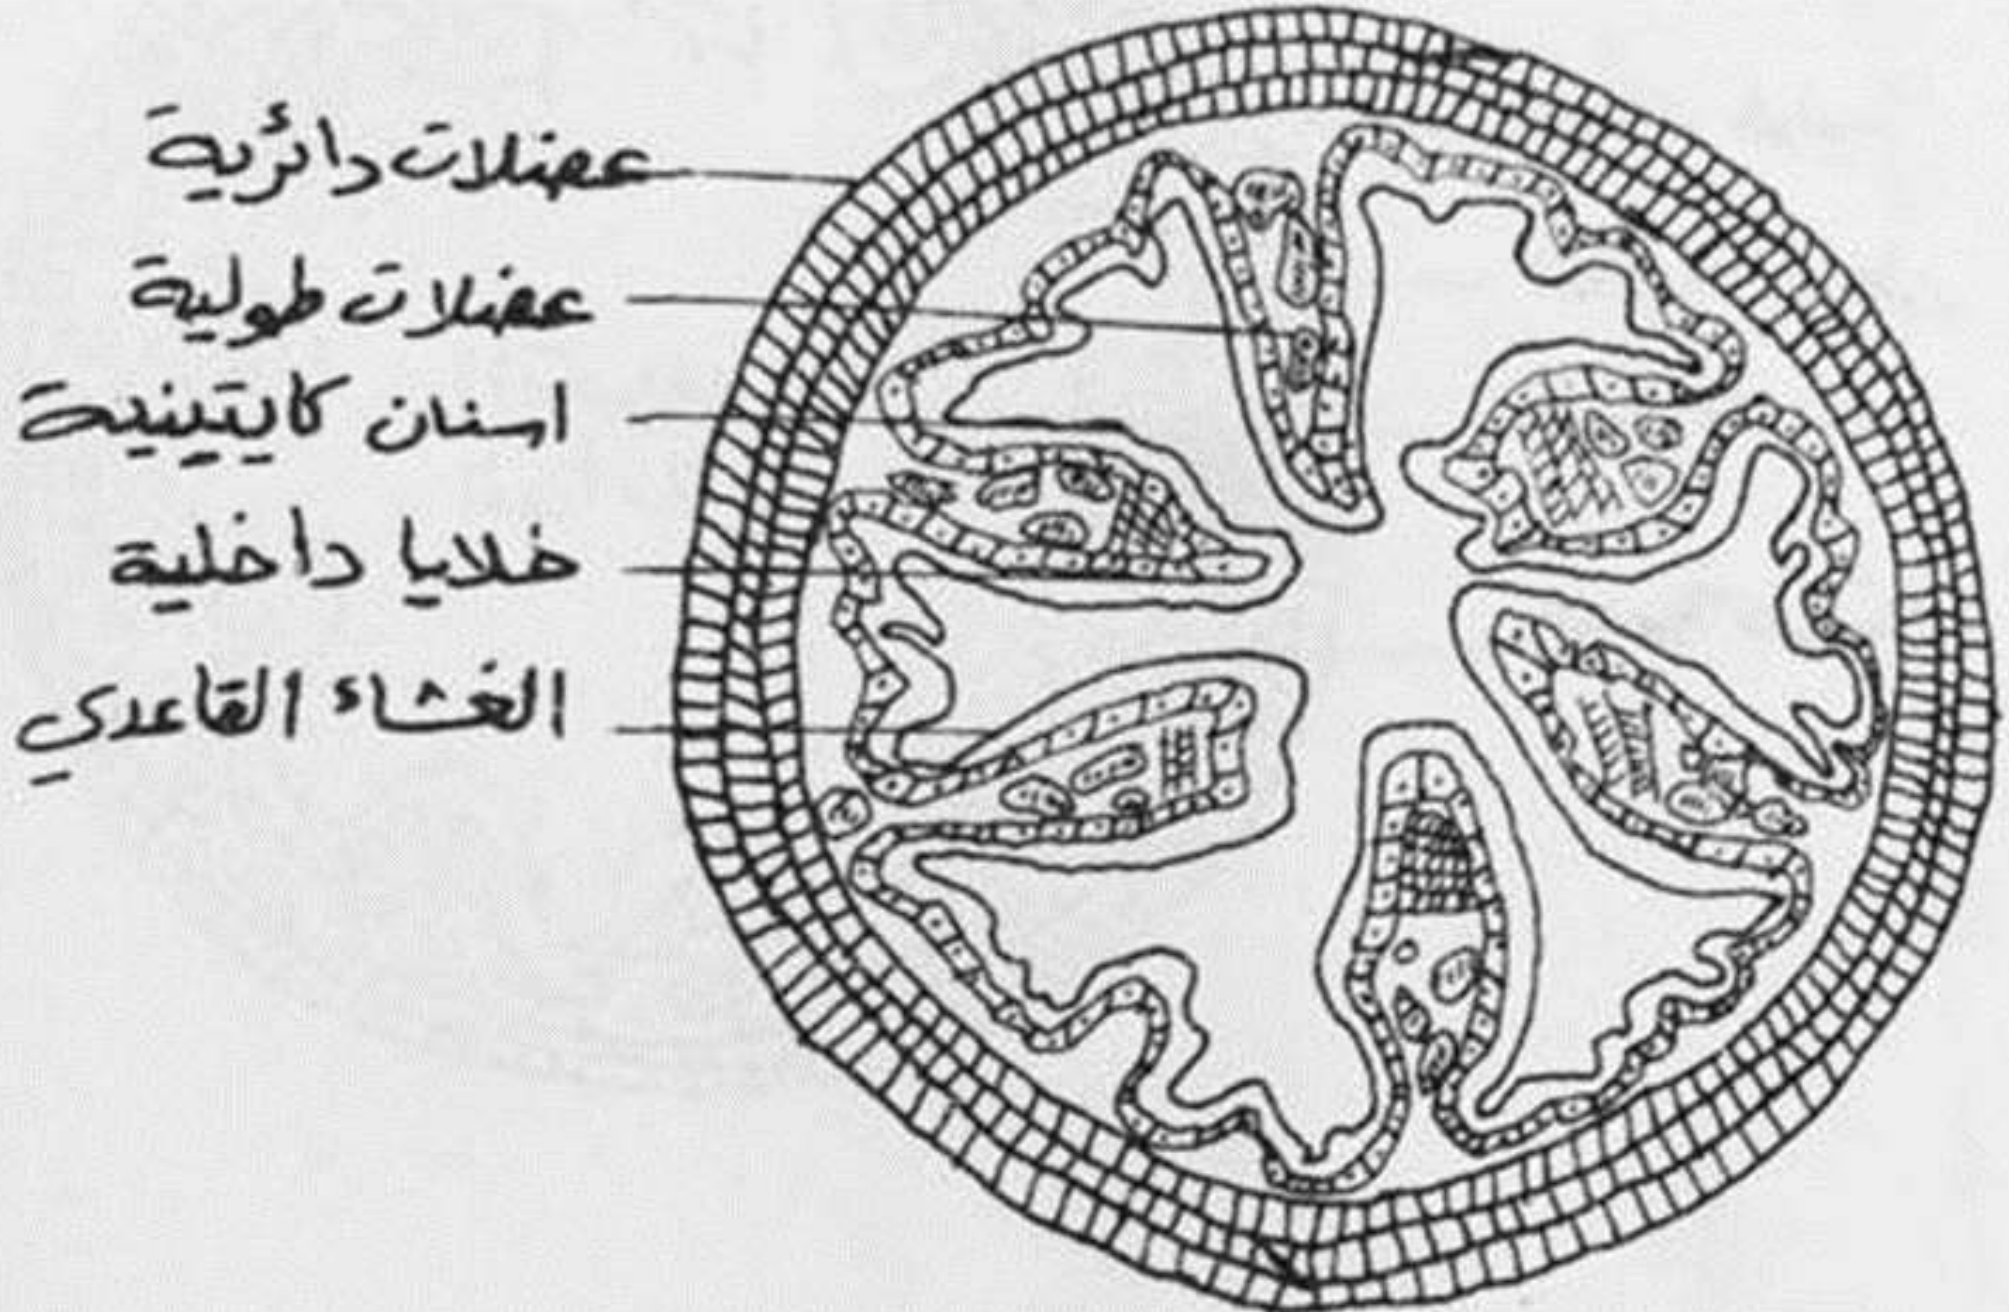 عضلات دائرية
عضلات طولية
اسنان كايتينية
خلايا داخلية
الغشاء القاعدي